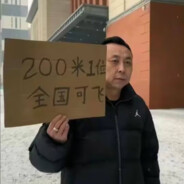 200米1倍
全国可飞